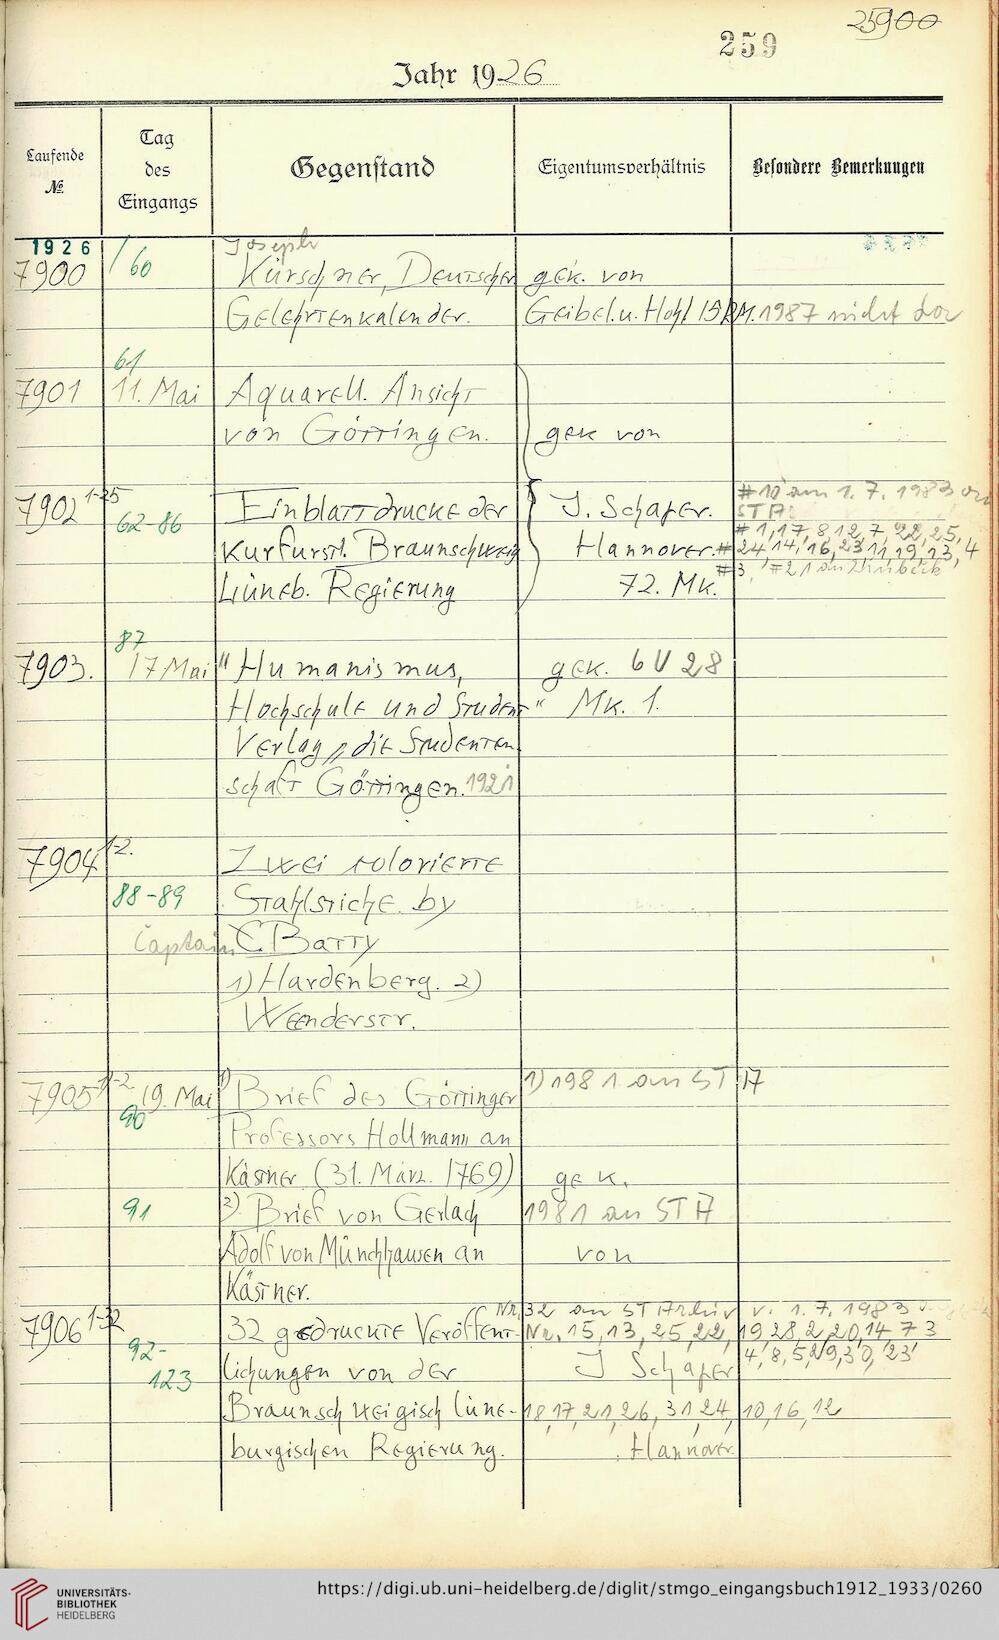 25900
259
Jahr 1926
Laufende
№.
Tag
des
Eingangs
Gegenstand
Eigentumsverhältnis
Besondere Bemerkungen
1926
7900
60
Joseph
Kürschner, Deutscher
Gelehrtenkalender.
gek. von
Geibel. u. Hohl 15 RM.
1987 nicht dor
61
7901
11. Mai
Aquarell. Ansicht
von Göttingen.
gek von
7902 1-25
62-86
Einblattdrucke der
Kurfürstl. Braunschweig
Lüneb. Regierung
J. Schafer.
Hannover.
72. Mk.
#10 am 1. 7. 1983 an
STA:
#1, 17, 8 12, 7, 22, 25,
#24, 14, 16, 23 11, 19, 13, 4
#3, #21 an
87
7903.
17 Mai
"Humanismus,
Hochschule und Student"
Verlag "die Studenten
schaft Göttingen. 1921
gek. 6 V 28
Mk. 1.
7904 1-2.
88-89
Zwei colorierte
Stahlstiche by
Captain C. Batty
1) Hardenberg. 2)
Weenderstr.
7905 1-2
19. Mai
90
1) Brief des Göttinger
Professors Hollmann an
Kästner (31. März. 1769)
1) 1981 an STA
gek.
91
2) Brief von Gerlach
Adolf von Münchhausen an
Kästner.
1981 an STA
von
7906 1-32
92-
123
32 gedruckte Veröffent-
lichungen von der
Braunschweigisch Lüne-
burgischen Regierung.
Nr. 32 an STArchiv v. 1. 7. 1983
Nr. 15, 13, 25, 22, 19 28, 2, 20, 14, 7 3
J Schafer
4, 8, 5, 29, 30, 23
18, 17, 21, 26, 31, 24, 10, 16, 12
Hannover.
UNIVERSITÄTS-
BIBLIOTHEK
HEIDELBERG
https://digi.ub.uni-heidelberg.de/diglit/stmgo_eingangsbuch1912_1933/0260